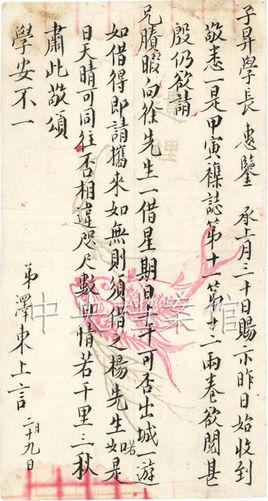 子昇學長 惠鑒 承上月三十日賜示昨日始收到
敬悉一是甲寅襍誌第十一第十二兩卷欲閱甚
殷仍欲請
兄牘暇向徐先生一借星期日上午可否出城一遊
如借得即請攜來如無則須借之楊先生者如是
日天晴可同往否相違咫尺數日情若千里三秋
肅此敬頌
學安不一
弟澤東上言 二月十九日
中央档案馆